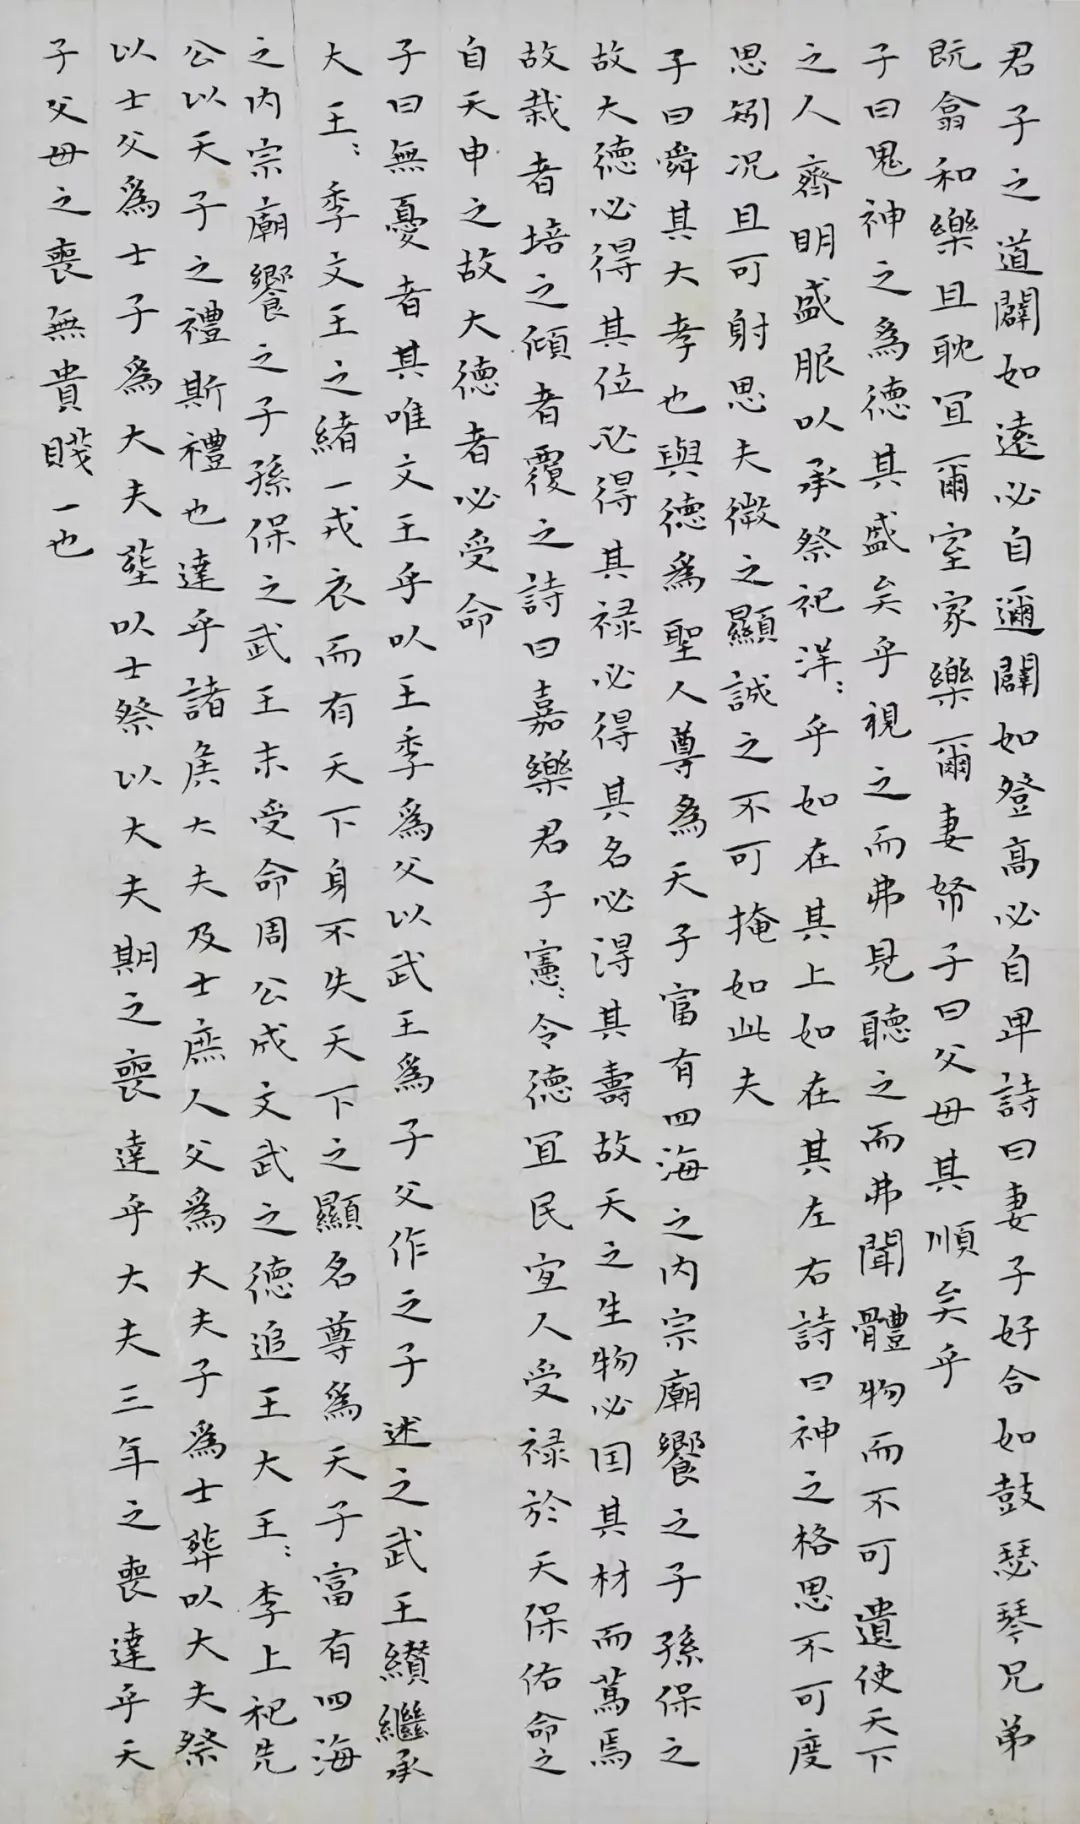 君子之道闢如遠必自邇闢如登高必自卑詩曰妻子好合如鼓瑟琴兄弟
既翕和樂且耽宜爾室家樂爾妻帑子曰父母其順矣乎
子曰鬼神之為德其盛矣乎視之而弗見聽之而弗聞體物而不可遺使天下
之人齊明盛服以承祭祀洋〻乎如在其上如在其左右詩曰神之格思不可度
思矧况且可射思夫微之顯誠之不可掩如此夫
子曰舜其大孝也與德為聖人尊為天子富有四海之内宗廟饗之子孫保之
故大德必得其位必得其禄必得其名必得其壽故天之生物必因其材而篤焉
故栽者培之傾者覆之詩曰嘉樂君子憲〻令德宜民宜人受禄於天保佑命之
自天申之故大德者必受命
子曰無憂者其唯文王乎以王季爲父以武王爲子父作之子述之武王纘繼承
大王〻季文王之緒一戎衣而有天下身不失天下之顯名尊爲天子富有四海
之内宗廟饗之子孫保之武王末受命周公成文武之德追王大王〻李上祀先
公以天子之禮斯禮也達乎諸侯大夫及士庶人父爲大夫子爲士葬以大夫祭
以士父爲士子爲大夫塟以士祭以大夫期之喪達乎大夫三年之喪達乎天
子父母之喪無貴賤一也